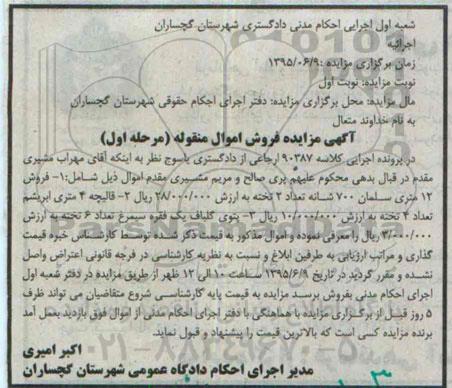 شعبه اول اجرایی احکام مدنی دادگستری شهرستان گچساران
اجرائیه
زمان برگزاری مزایده :۱۳۹۵/۰۶/۹
نوبت مزایده: نوبت اول
مال مزایده: محل برگزاری مزایده: دفتر اجرای احکام حقوقی شهرستان گچساران
به نام خداوند متعال
آگهی مزایده فروش اموال منقوله (مرحله اول)
در پرونده اجرایی کلاسه ۹۰۳۸۷ ارجاعی از دادگستری یاسوج نظر به اینکه آقای مهراب مشیری
مقدم در قبال بدهی محکوم علیهم پری صالح و مریم مشیری مقدم اموال ذیل شامل:۱- فروش
۱۲ متری سلمان ۷۰۰ شانه تعداد ۲ تخته به ارزش ۲۸/۰۰۰/۰۰۰ ریال ۲- قالیچه ۴ متری ابریشم
تعداد ۴ تخته به ارزش ۱۰/۰۰۰/۰۰۰ ریال ۳- پتوی گلباف یک فقره سیمرغ تعداد ۶ تخته به ارزش
۳/۰۰۰/۰۰۰ ریال را معرفی نموده و اموال مذکور به قیمت ذکر شده توسط کارشناس خبره قیمت
گذاری و مراتب ارزیابی به طرفین ابلاغ و نسبت به نظریه کارشناسی در فرجه قانونی اعتراض واصل
نشده و مقرر گردید در تاریخ ۱۳۹۵/۶/۹ ساعت ۱۰ الی ۱۲ ظهر از طریق مزایده در دفتر شعبه اول
اجرای احکام مدنی بفروش برسد مزایده به قیمت پایه کارشناسی شروع متقاضیان می تواند ظرف
۵ روز قبل از برگزاری مزایده با هماهنگی با دفتر اجرای احکام مدنی از اموال فوق بازدید بعمل آمد
برنده مزایده کسی است که بالاترین قیمت را پیشنهاد و قبول نماید.
اکبر امیری
مدیر اجرای احکام دادگاه عمومی شهرستان گچساران